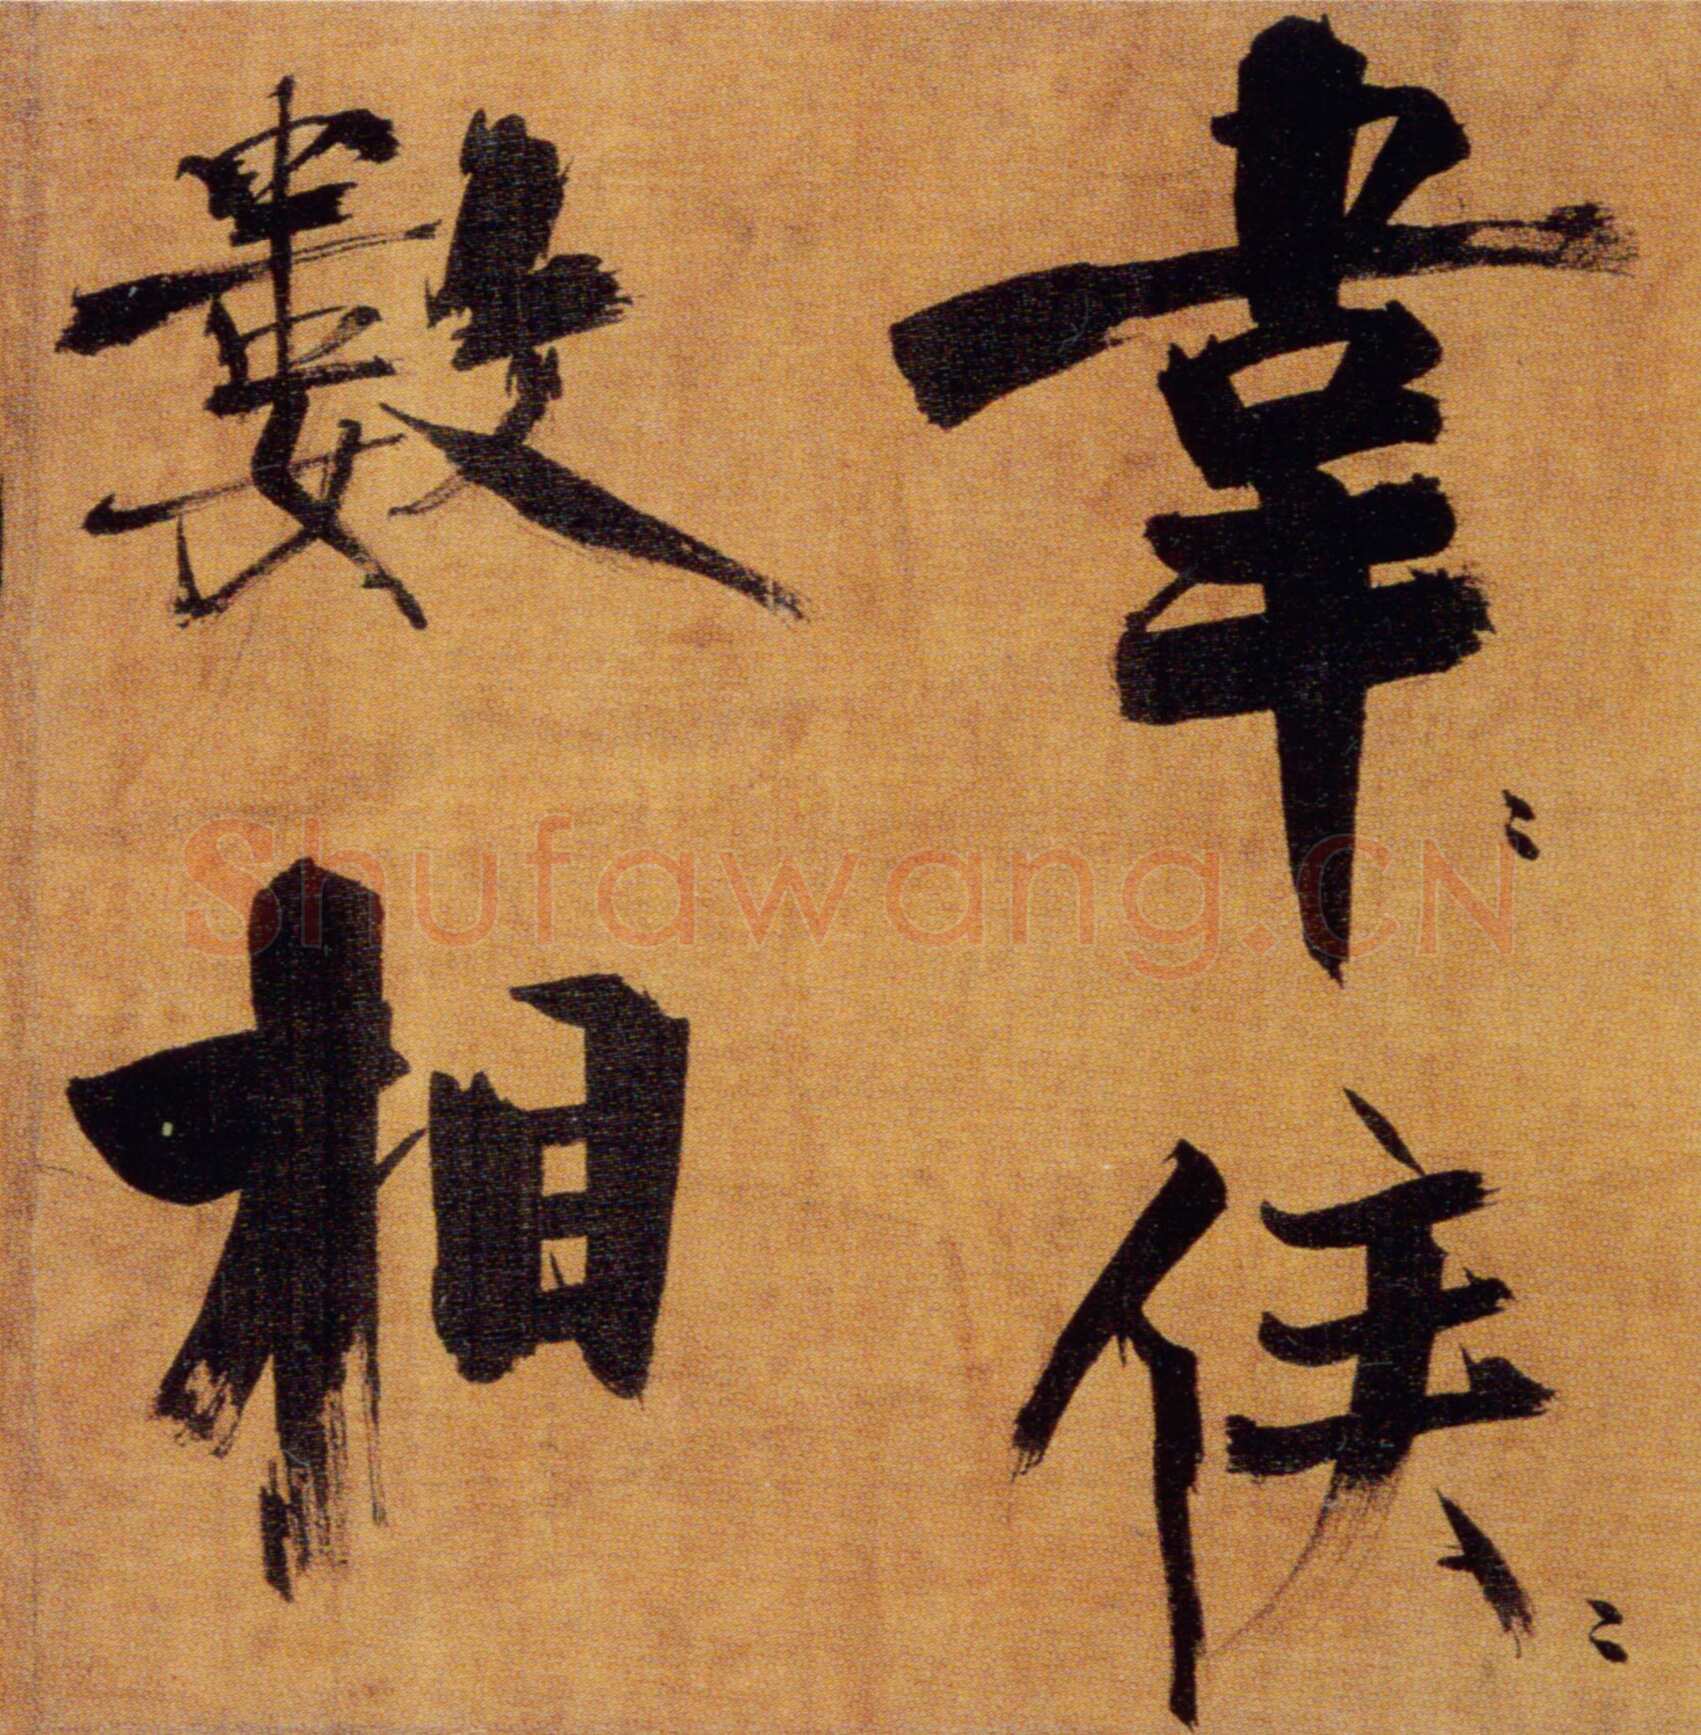 韋〻侯〻
數相
Shufawang.CN